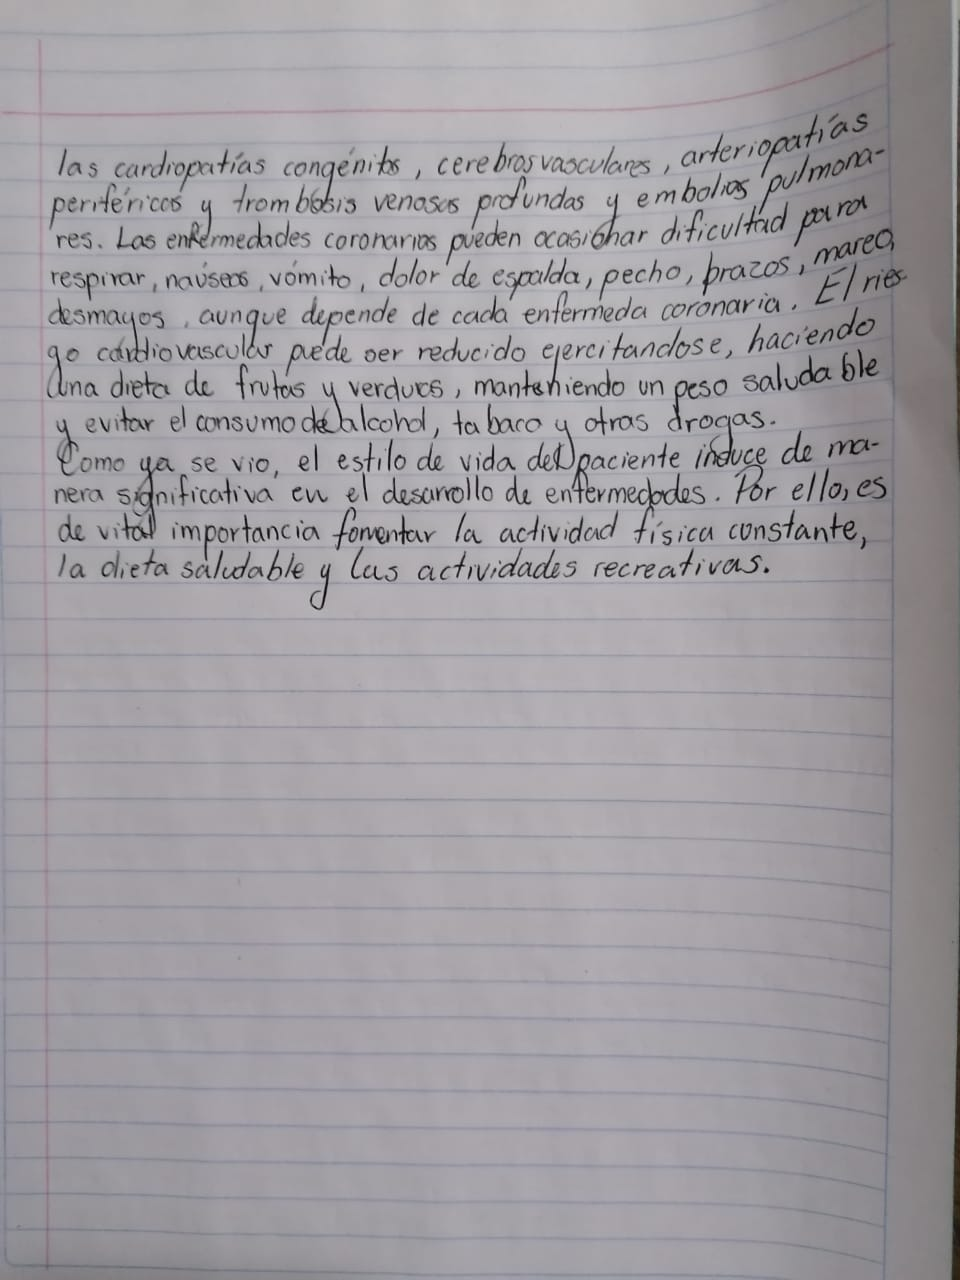 las cardiopatías congénitas, cerebrosvasculares, arteriopatías
periféricas y trombosis venosas profundas y embolias pulmona-
res. Las enfermedades coronarias pueden ocasionar dificultad para
respirar, naúseas, vómito, dolor de espalda, pecho, brazos, mareo,
desmayos, aunque depende de cada enfermeda coronaria. El ries-
go cardiovascular puede ser reducido ejercitandose, haciendo
una dieta de frutas y verduras, manteniendo un peso saludable
y evitar el consumo de alcohol, tabaco y otras drogas.
Como ya se vio, el estilo de vida del paciente induce de ma-
nera significativa en el desarrollo de enfermedades. Por ello, es
de vital importancia fomentar la actividad física constante,
la dieta saludable y las actividades recreativas.